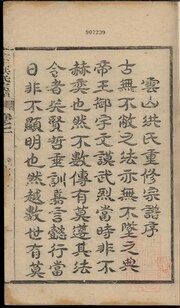 907239
雲山洪氏重修宗譜序
古無不敝之法亦無不墜之典
帝王御宇文謨武烈當時非不
赫奕也然不數傳有莫遵其法
令者矣賢哲垂訓嘉言懿行當
日非不顯明也然越數世有莫